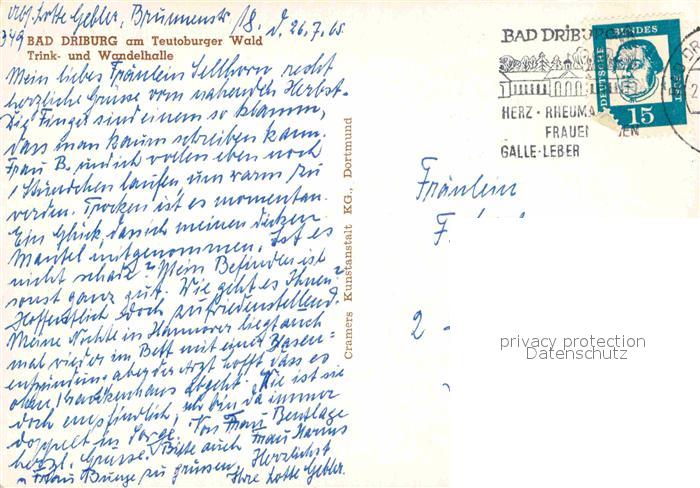 Abs. Lotte Gebler, Brunnenstr. 18. d. 26.7.65
349
BAD DRIBURG am Teutoburger Wald
Trink- und Wandelhalle
Mein liebes Fräulein Sellhorn, recht
herzliche Grüsse vom nahenden Herbst.
Die Finger sind einem so klamm,
dass man kaum schreiben kann.
Frau B. und ich wollen eben noch
1 Stündchen laufen, um warm zu
werden. Trocken ist es momentan.
Ein Glück, dass ich meinen dicken
Mantel mitgenommen. Ist es
nicht schade? Mein Befinden ist
sonst ganz gut. Wie geht es Ihnen?
Hoffentlich doch zufriedenstellend.
Meine Nichte in Hannover liegt auch
mal wieder im Bett mit einer Blasen=
entzündung, aber der Arzt hofft dass es
ohne Krankenhaus abgeht. Sie ist sie
doch empfindlich, ich bin da immer
doppelt in Sorge. Von Frau Bentlage
herzl. Grüsse. Bitte auch Frau Harms
u. Frau Bunge zu grüssen. Herzlichst
Ihre Lotte Gebler.
Cramers Kunstanstalt KG., Dortmund
BAD DRIBURG
HERZ · RHEUMA
FRAUEN
GALLE · LEBER
DEUTSCHE BUNDES
15
Fräulein
F.
2
privacy protection
Datenschutz